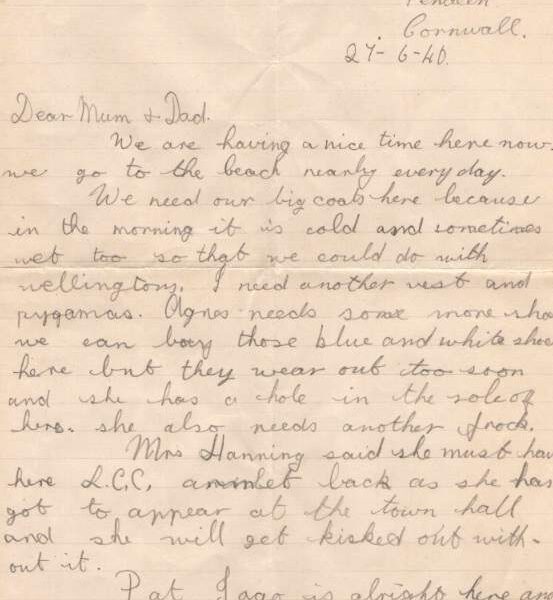 Pendeen
Cornwall.
27-6-40.
Dear Mum & Dad.
We are having a nice time here now.
we go to the beach nearly every day.
We need our big coats here because
in the morning it is cold and sometimes
wet too so that we could do with
wellingtons. I need another vest and
pygamas. Agnes needs some more shoe
we can buy those blue and white shoe
here but they wear out too soon
and she has a hole in the sole of
hers. she also needs another frock.
Mrs Hanning said she must hav
here L.C.C. back as she has
got to appear at the town hall
and she will get kisked out with-
out it.
Pat Jago is alright here and